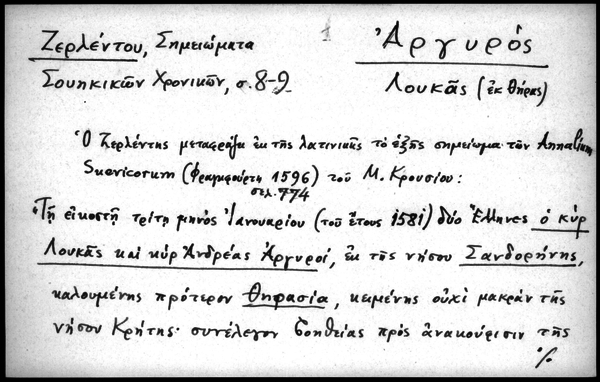 Ζερλέντου, Σημειώματα
1
Ἀργυρὸς
Σουηκικῶν Χρονικῶν, σ. 8-9
Λουκᾶς (ἐκ Θήρας)
Ὁ Ζερλέντης μεταφράζει ἐκ τῆς λατινικῆς τὸ ἑξῆς σημείωμα τῶν Annalium
Suevicorum (Φραγκφούρτη 1596) τοῦ Μ. Κρουσίου:
σελ. 774
"Τῇ εἰκοστῇ τρίτῃ μηνὸς Ἰανουαρίου (τοῦ ἔτους 1581) δύο Ἕλληνες ὁ κὺρ
Λουκᾶς καὶ κὺρ Ἀνδρέας Ἀργυροί, ἐκ τῆς νήσου Σανδορήνης,
καλουμένης πρότερον Θηφασία, κειμένης οὐχὶ μακρὰν τῆς
νήσου Κρήτης· συνέλεγον βοηθείας πρὸς ἀνακούφισιν τῆς
·/.